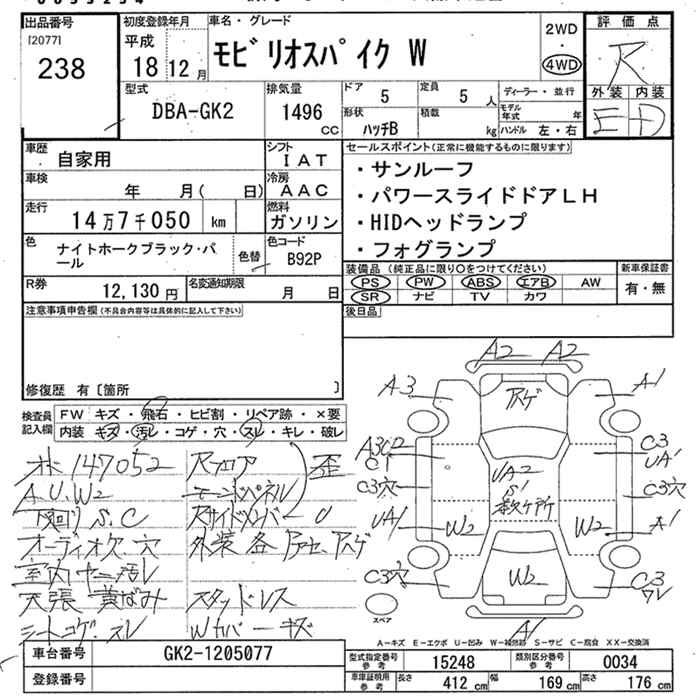 出品番号
[2077]
238
初度登録年月
平成
18 12 月
車名・グレード
モビリオスパイク W
2WD
・
4WD
評価点
R
外装 内装
E D
型式
DBA-GK2
排気量
1496
CC
ドア
5
定員
5 人
ディーラー・並行
形状
ハッチB
積載
kg
モデル年式 年
ハンドル 左・右
車歴
自家用
シフト
IAT
セールスポイント(正常に機能するものに限ります)
・サンルーフ
・パワースライドドアLH
・HIDヘッドランプ
・フォグランプ
車検
年 月( 日)
冷房
AAC
走行
14万7千050 km
燃料
ガソリン
色
ナイトホークブラック・パール
色替
色コード
B92P
装備品 (純正品に限り○をつけてください)
新車保証書
PS PW ABS エアB AW
SR ナビ TV カワ
有・無
R券
12,130 円
名変通知期限
月 日
後日品
注意事項申告欄(不具合内容等は具体的に記入して下さい)
修復歴 有〔箇所 〕
検査員記入欄
FW キズ・飛石・ヒビ割・リペア跡・×要
内装 キズ・汚レ・コゲ・穴・スレ・キレ・破レ
メ 147052
Rフロア
歪
A.U.W2
下回り S.C
Rサイドメンバー
オーディオ欠・穴
外装各
室内 ヤニ汚レ
天張 黄ばみ
スタッドレス
シートコゲ・スレ
Wカバーキズ
A2 A2
A3 A1
C3
UA1
C1
C3穴
C3穴
UA2
S1
UA1
W2
W2
A1
C3穴
W2
C3
A1
スペア
A-キズ E-エクボ U-凹み W-補修跡 S-サビ C-腐食 XX-交換済
車台番号
GK2-1205077
登録番号
型式指定番号
参考
15248
類別区分番号
参考
0034
車庫証明用
参考
長さ 412 cm
幅 169 cm
高さ 176 cm